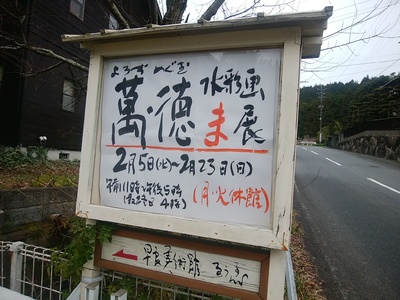 よろず めぐる
萬・徳 水彩画
ま展
2月5日(火)~2月23日(日)
午前11時~午後5時
(最終日 4時)
(月・火休館)
早家美術館